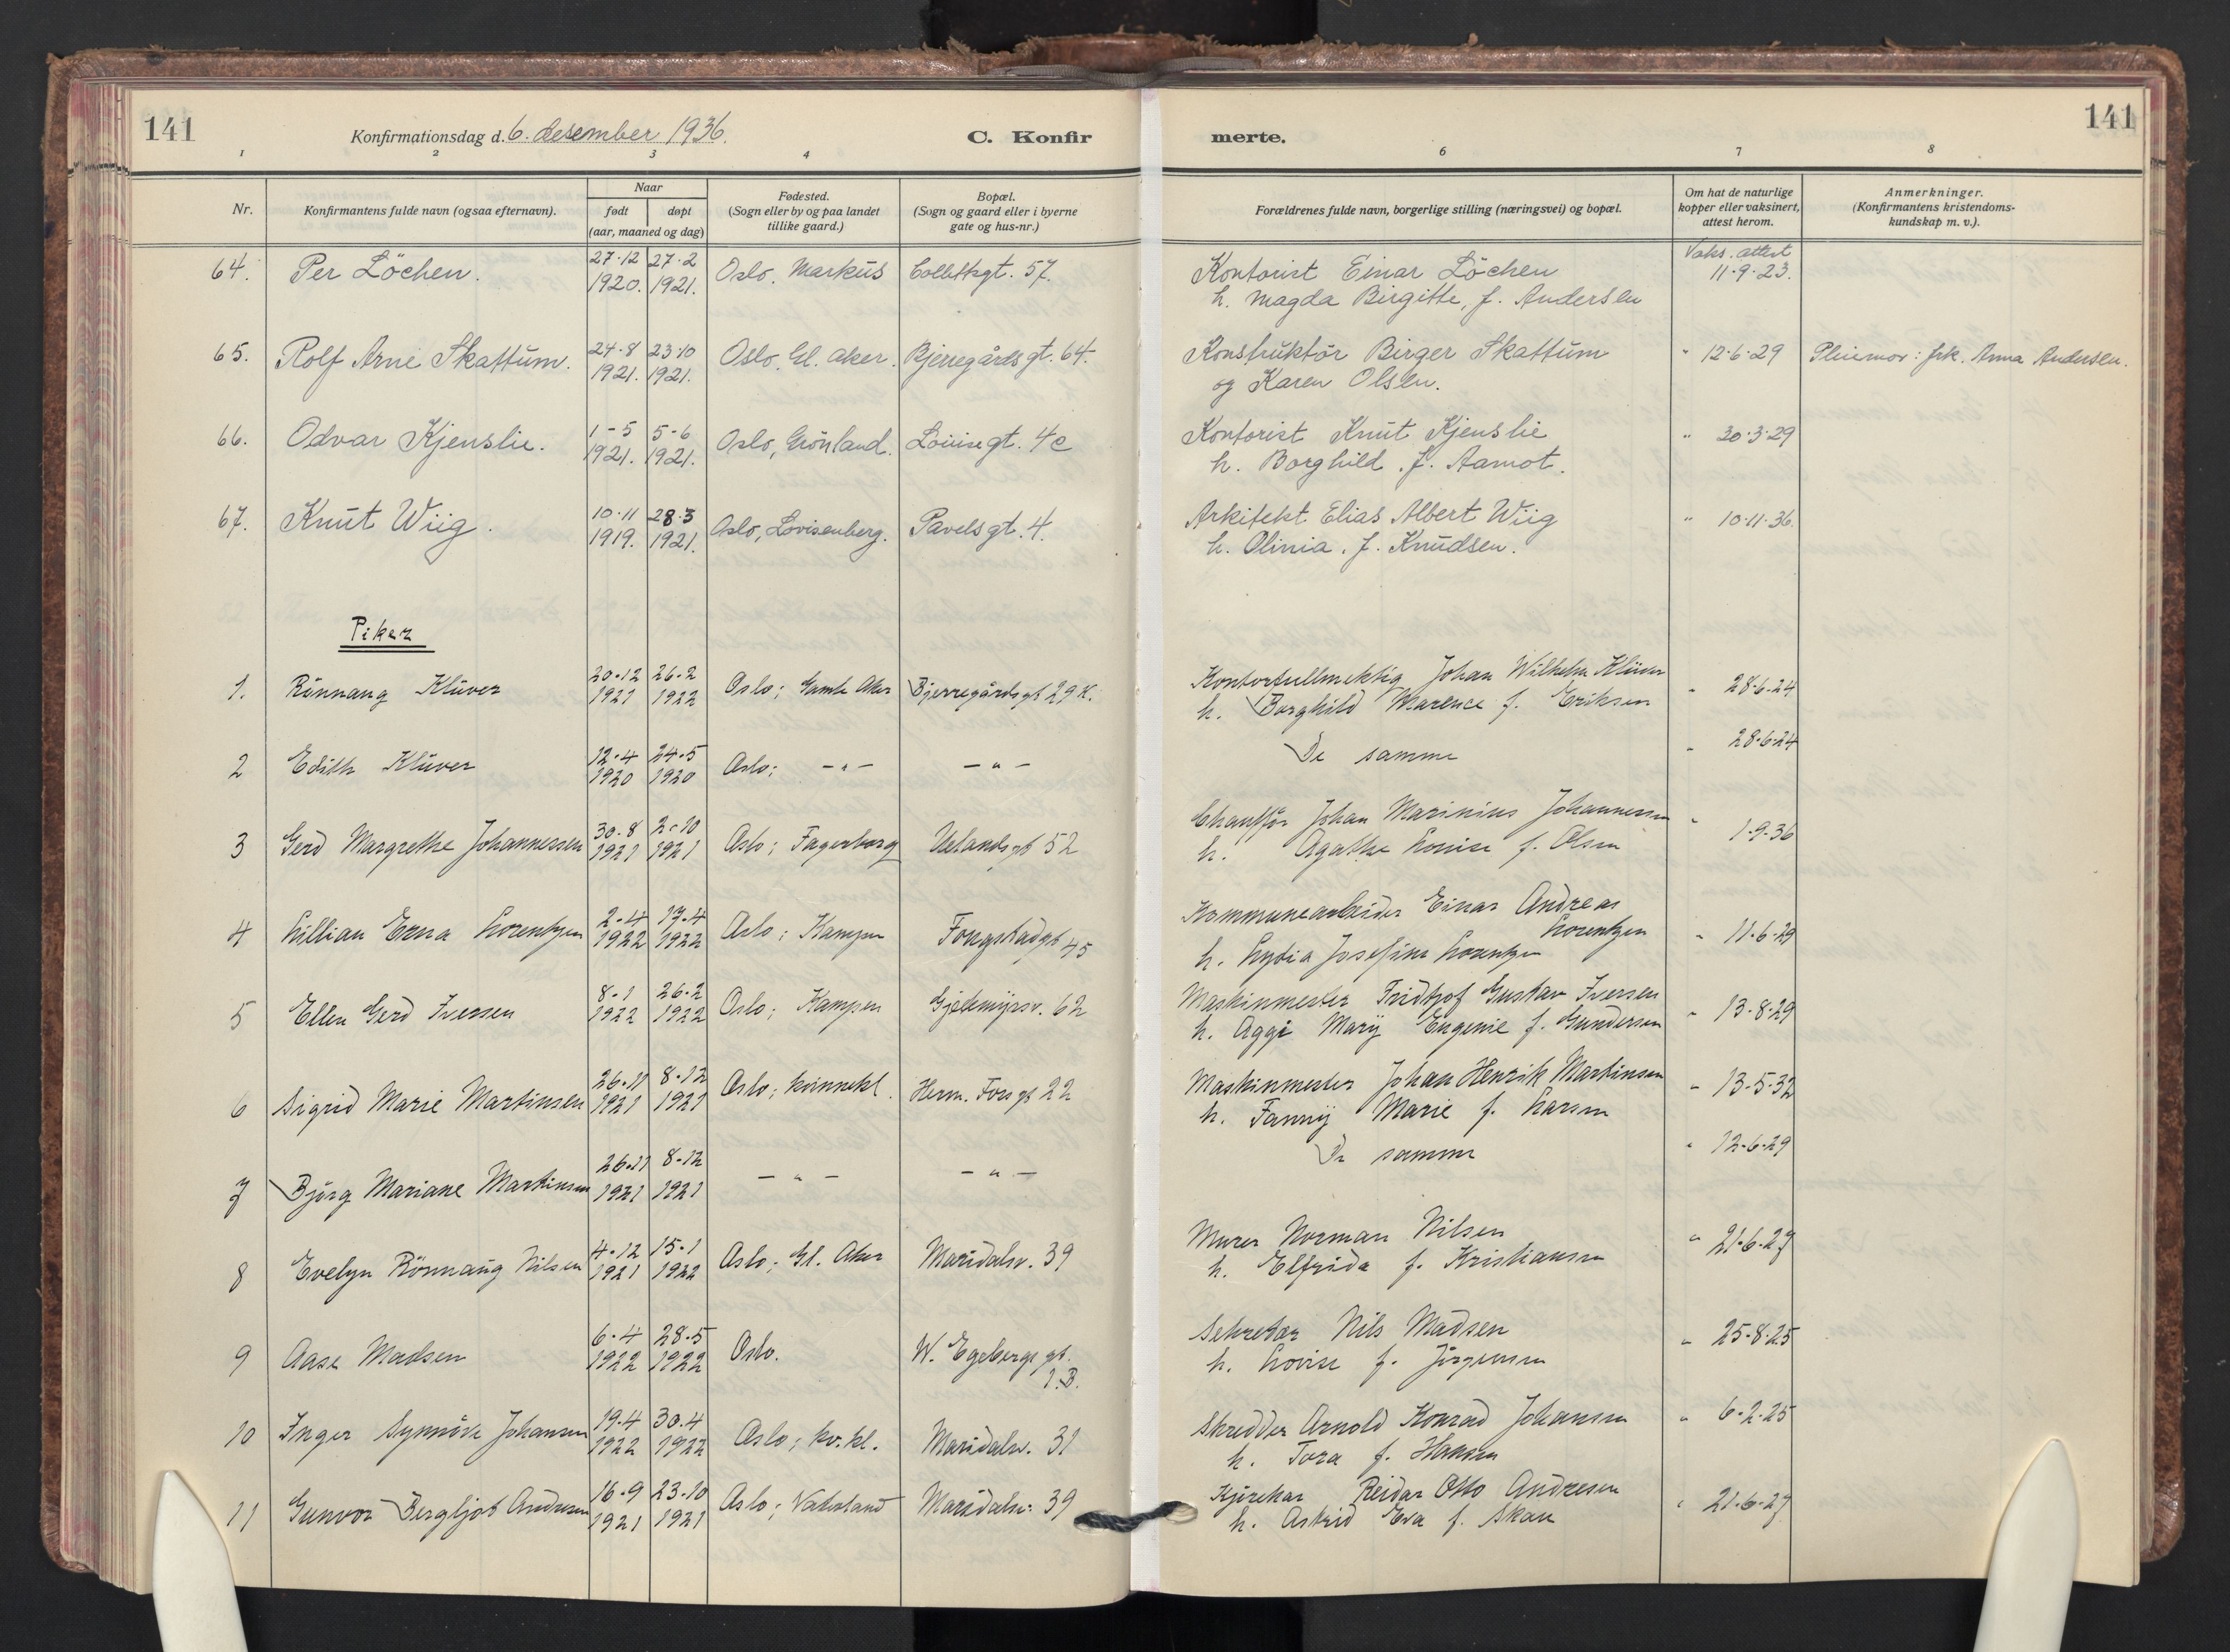 141
Konfirmationsdag d. 6. desember 1936.
C. Konfirmerte.
141
1 2 3 4 6 7 8
Nr.
Konfirmantens fulde navn (ogsaa efternavn).
Naar
født
døpt
(aar, maaned og dag)
Fødested.
(Sogn eller by og paa landet
tillike gaard.)
Bopæl.
(Sogn og gaard eller i byerne
gate og hus-nr.)
Forældrenes fulde navn, borgerlige stilling (næringsvei) og bopæl.
Om hat de naturlige
kopper eller vaksinert,
attest herom.
Anmerkninger.
(Konfirmantens kristendoms-
kundskap m. v.).
64. Per Löchen. 27·12 1920. 27·2 1921. Oslo, Markus Collettsgt. 57. Kontorist Einar Löchen Vaks. attest 11·9·23.
h. Magda Birgitte, f. Andersen
65. Rolf Arne Skattum. 24·8 1921. 23·10 1921. Oslo, Gl. Aker. Bjerregårdsgt. 64. Konstruktör Birger Skattum " 12·6·29 Pleiemor: frk. Anna Andersen.
og Karen Olsen.
66. Odvar Kjenslie. 1-5 1921. 5-6 1921. Oslo, Grönland. Louisegt. 4c Kontorist Knut Kjenslie " 30·3·29
h. Borghild, f. Aamot.
67. Knut Wiig. 10·11 1919. 28·3 1921. Oslo, Lovisenberg. Pavelsgt. 4. Arkitekt Elias Albert Wiig " 10·11·36.
h. Olinia, f. Knudsen.
Piker
1. Rönnaug Klüver 20-12 1921 26-2 1922 Oslo; Gamle Aker Bjerregårdsgt 29 K. Kontorfullmektig Johan Wilhelm Klüver " 28-6-24
h. Borghild Marence f. Eriksen
2 Edith Klüver 12-4 1920 24-5 1920 Oslo; -"- -"- De samme " 28-6-24
3 Gerd Margrethe Johannessen 30-8 1921 2-10 1921 Oslo; Fagerborg Uelandsgt 52 Chauffør Johan Marinius Johannessen " 1-9-36
h. Agathe Louise f. Olsen
4 Lillian Erna Lorentzen 2-4 1922 17-4 1922 Oslo; Kampen Fougstadgt 45 Kommunearbeider Einar Andreas
Lorentzen " 11-6-29
h. Lydia Josefine Lorentzen
5 Ellen Gerd Iversen 8-1 1922 26-2 1922 Oslo; Kampen Gjetemyrsv. 62 Maskinmester Fridtjof Gustav Iversen " 13-8-29
h. Aggi Mary Eugenie f. Gundersen
6 Sigrid Marie Martinsen 26-11 1921 8-12 1921 Oslo; kvinnekl. Herm. Fossgt 22 Maskinmester Johan Henrik Martinsen " 13-5-32
h. Fanny Marie f. Larsen
7 Björg Mariane Martinsen 26-11 1921 8-12 1921 -"- -"- De samme " 12-6-29
8 Evelyn Rönnaug Nilsen 4-12 1921 15-1 1922 Oslo; Gl. Aker Maridalsv. 39 Murer Norman Nilsen " 21-6-27
h. Elfrida f. Kristiansen
9 Aase Madsen 6-4 1922 28-5 1922 Oslo. W. Egebergs gt. 1.B. Sekretær Nils Madsen " 25-8-25
h. Lovise f. Jörgensen
10 Inger Synnöve Johansen 19-4 1922 30-4 1922 Oslo; kv.kl. Maridalsv. 31 Skredder Arnold Konrad Johansen " 6-2-25
h. Tora f. Hansen
11 Gunvor Bergljot Andresen 16-9 1921 23-10 1921 Oslo; Vaterland Maridalsv. 39 Kjörekar Reidar Otto Andresen " 21-6-27
h. Astrid Eva f. Skau